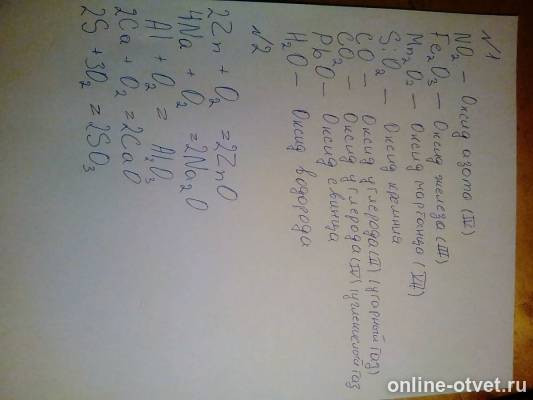 №1
NO₂ — Оксид азота (IV)
Fe₂O₃ — Оксид железа (III)
Mn₂O₇ — Оксид марганца (VII)
SiO₂ — Оксид кремния
CO — Оксид углерода (II) (угарный газ)
CO₂ — Оксид углерода (IV) (углекислый газ
PbO — Оксид свинца
H₂O — Оксид водорода
№2
2Zn + O₂ = 2ZnO
4Na + O₂ = 2Na₂O
Al + O₂ = Al₂O₃
2Ca + O₂ = 2CaO
2S + 3O₂ = 2SO₃
online-otvet.ru